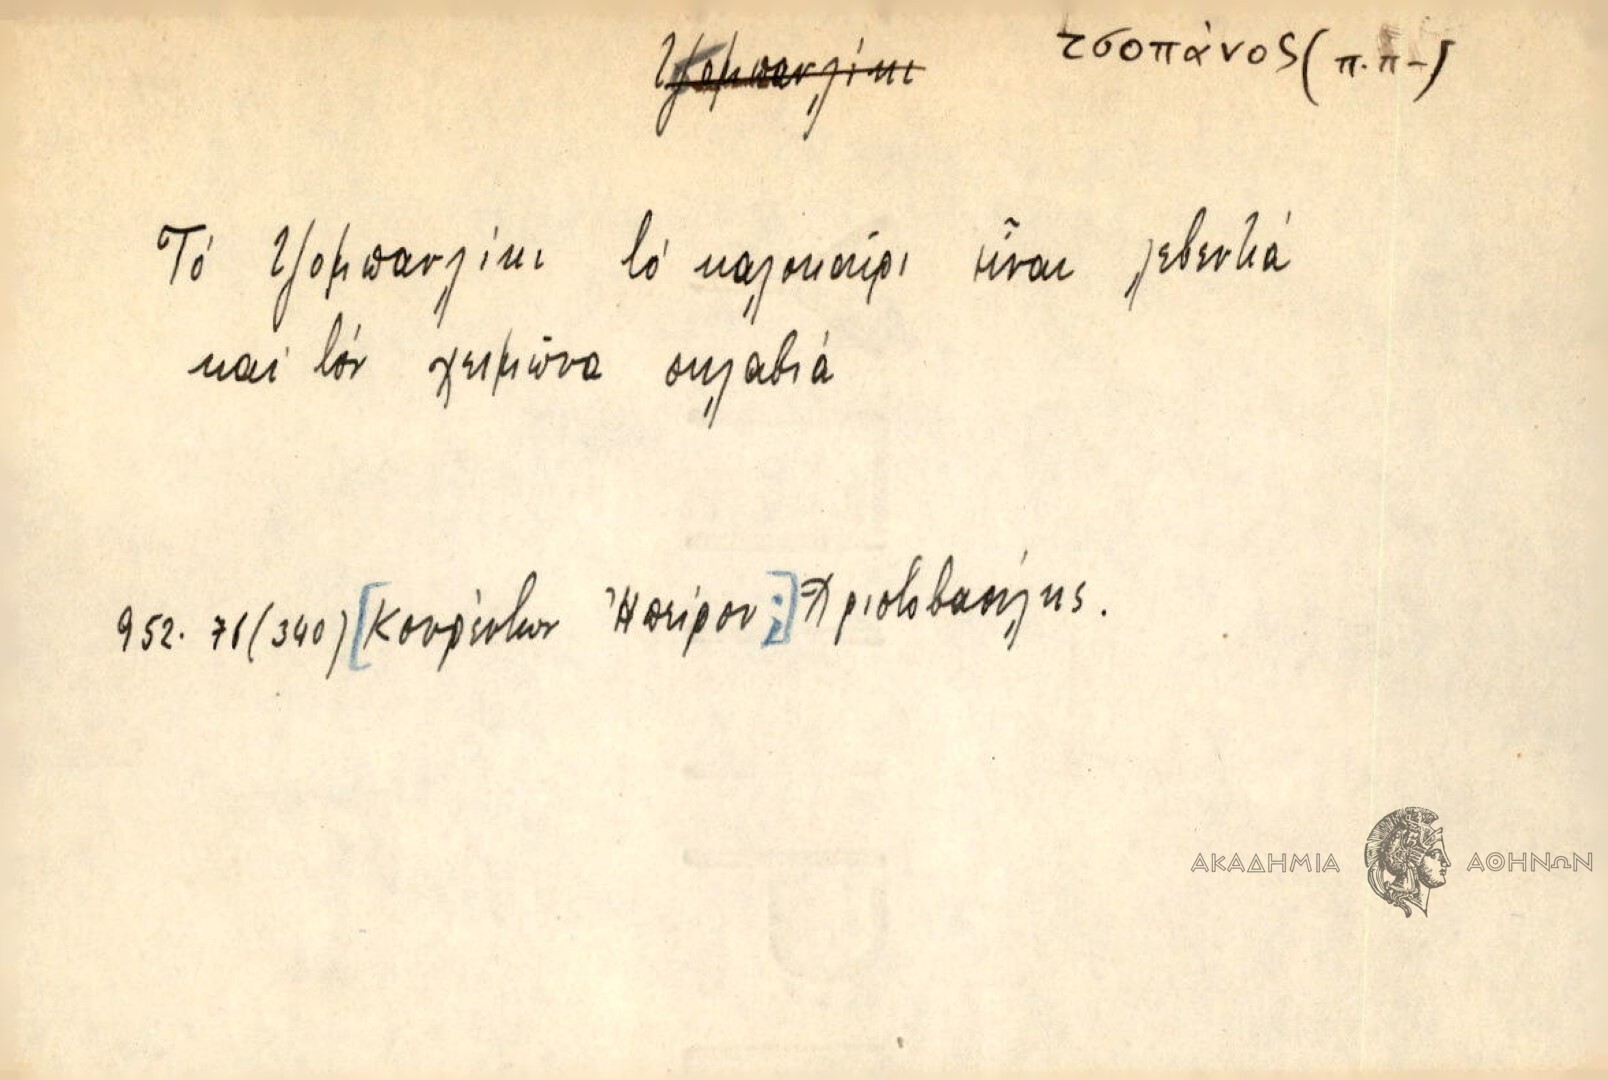 Τζομπανλίκι τσοπάνος (π.π-)
Τό τζομπανλίκι τό καλοκαίρι εἶναι λεβεντιά
καί τόν χειμῶνα σκλαβιά
952. 76 (340) [Κουρέντων Ἠπείρου;] Χριστοβασίλης.
ΑΚΑΔΗΜΙΑ ΑΘΗΝΩΝ